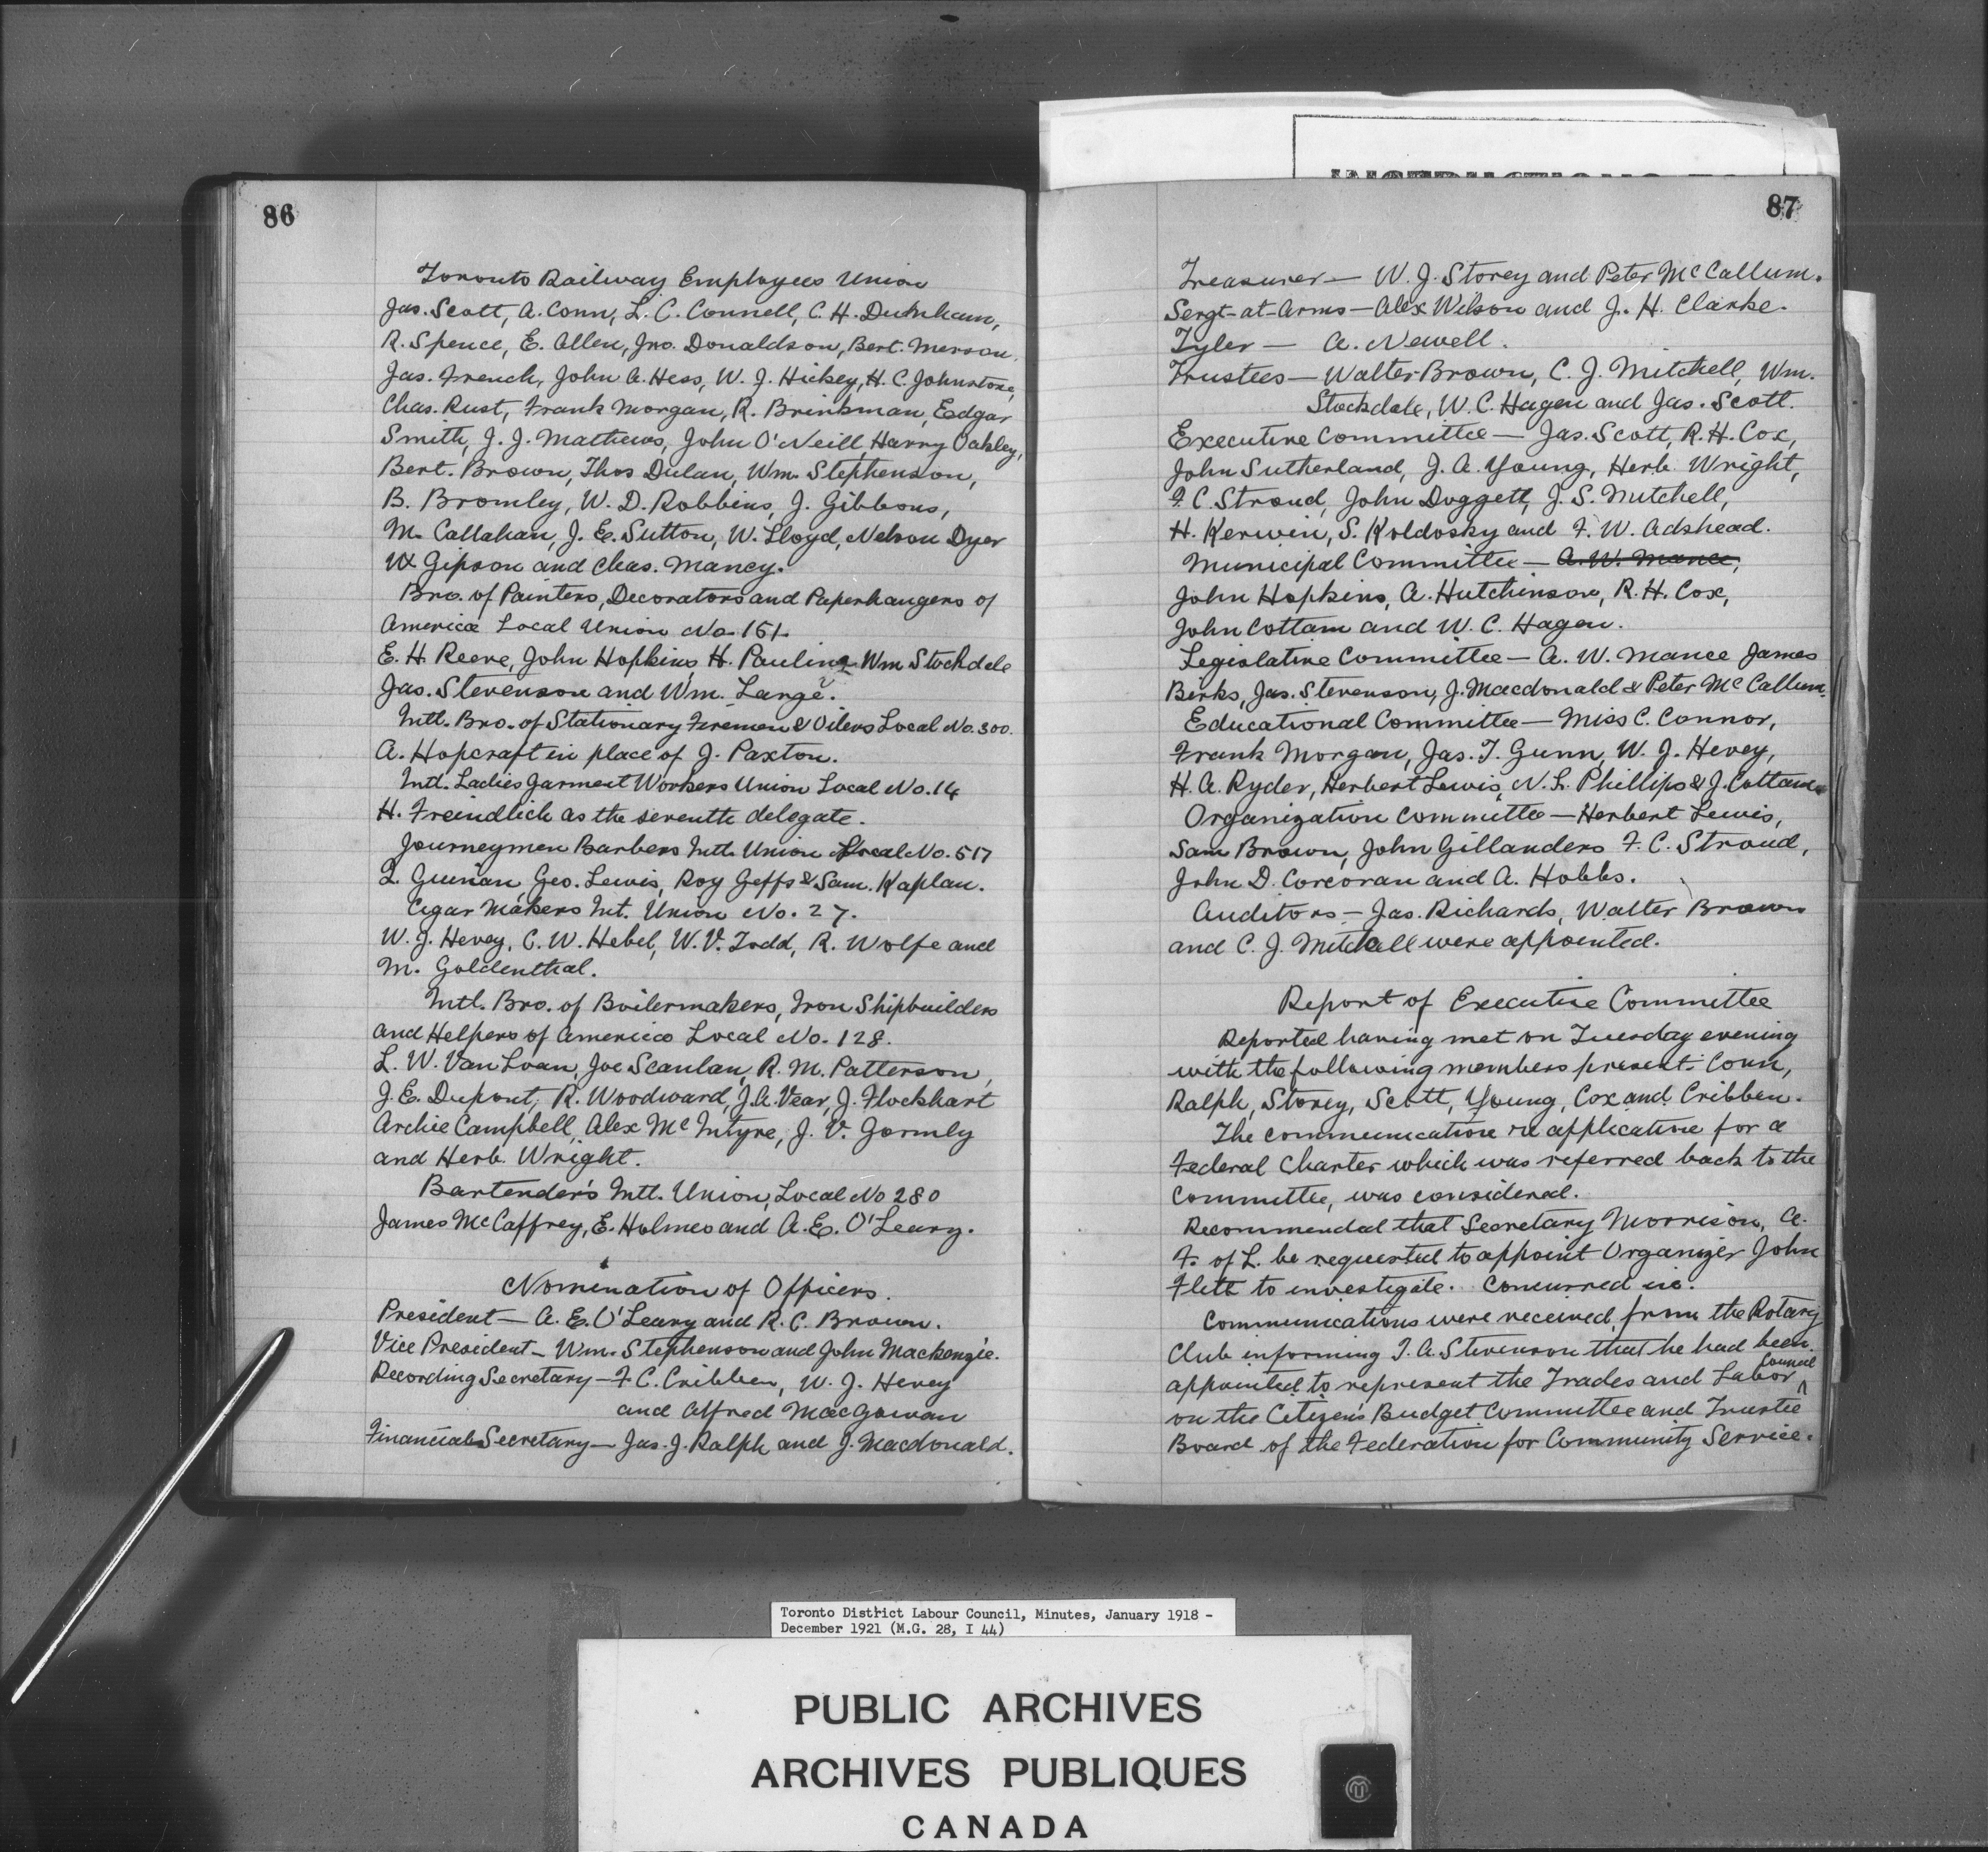 86
Toronto Railway Employees Union
Jas. Scott, A. Conn, L. C. Connell, C. H. Dunham,
R. Spence, E. Allen, Jno. Donaldson, Bert. Merson,
Jas. French, John A. Hess, W. J. Hickey, H. C. Johnstone,
Chas. Rust, Frank Morgan, R. Brinkman, Edgar
Smith, J. J. Mathews, John O'Neill, Harry Oakley,
Bert. Brown, Thos Dulan, Wm. Stephenson,
B. Bromley, W. D. Robbins, J. Gibbons,
M. Callahan, J. E. Sutton, W. Lloyd, Nelson Dyer
W. Gipson and Chas. Mancy.
Bro. of Painters, Decorators and Paperhangers of
America Local Union No. 151.
E. H. Reeve, John Hopkins, H. Pauling, Wm Stockdale
Jas. Stevenson and Wm. Lange.
Intl. Bro. of Stationary Firemen & Oilers Local No. 300.
A. Hopcraft in place of J. Paxton.
Intl. Ladies Garment Workers Union Local No. 14
H. Freindlich as the seventh delegate.
Journeymen Barbers Intl. Union Local No. 517
L. Guinan, Geo. Lewis, Roy Geffs & Sam. Kaplan.
Cigar Makers Int. Union No. 27.
W. J. Hevey, C. W. Hebel, W. V. Todd, R. Wolfe and
M. Goldenthal.
Intl. Bro. of Boilermakers, Iron Shipbuilders
and Helpers of America Local No. 128.
L. W. Van Loan, Joe Scanlan, R. M. Patterson,
J. E. Dupont, R. Woodward, J. A. Vear, J. Flockhart
Archie Campbell, Alex McIntyre, J. V. Gormly
and Herb. Wright.
Bartender's Intl. Union, Local No 280
James McCaffrey, E. Holmes and A. E. O'Leary.
Nomination of Officers.
President — A. E. O'Leary and R. C. Brown.
Vice President — Wm. Stephenson and John Mackenzie.
Recording Secretary — F. C. Cribben, W. J. Hevey
and Alfred MacGowan
Financial Secretary — Jas. J. Ralph and J. Macdonald.
87
Treasurer — W. J. Storey and Peter McCallum.
Sergt-at-Arms — Alex Wilson and J. H. Clarke.
Tyler — A. Newell.
Trustees — Walter Brown, C. J. Mitchell, Wm.
Stockdale, W. C. Hagen and Jas. Scott.
Executive Committee — Jas. Scott, R. H. Cox,
John Sutherland, J. A. Young, Herb. Wright,
F. C. Stroud, John Doggett, J. S. Mitchell,
H. Kerwin, S. Koldosky and F. W. Adshead.
Municipal Committee — A. W. Mance,
John Hopkins, A. Hutchinson, R. H. Cox,
John Cottam and W. C. Hagen.
Legislative Committee — A. W. Mance James
Berks, Jas. Stevenson, J. Macdonald & Peter McCallum.
Educational Committee — Miss C. Connor,
Frank Morgan, Jas. T. Gunn, W. J. Hevey,
H. A. Ryder, Herbert Lewis, N. L. Phillips & J. Cottam
Organization Committee — Herbert Lewis,
Sam Brown, John Gillanders F. C. Stroud,
John D. Corcoran and A. Hobbs.
Auditors — Jas. Richards, Walter Brown
and C. J. Mitchell were appointed.
Report of Executive Committee
Reported having met on Tuesday evening
with the following members present: Conn,
Ralph, Storey, Scott, Young, Cox and Cribben.
The communication re application for a
Federal Charter which was referred back to the
Committee, was considered.
Recommended that Secretary Morrison, A.
F. of L. be requested to appoint Organizer John
Flett to investigate. Concurred in.
Communications were received from the Rotary
Club informing T. A. Stevenson that he had been
appointed to represent the Trades and Labor Council
on the Citizens Budget Committee and Trustee
Board of the Federation for Community Service.
Toronto District Labour Council, Minutes, January 1918 -
December 1921 (M.G. 28, I 44)
PUBLIC ARCHIVES
ARCHIVES PUBLIQUES
CANADA